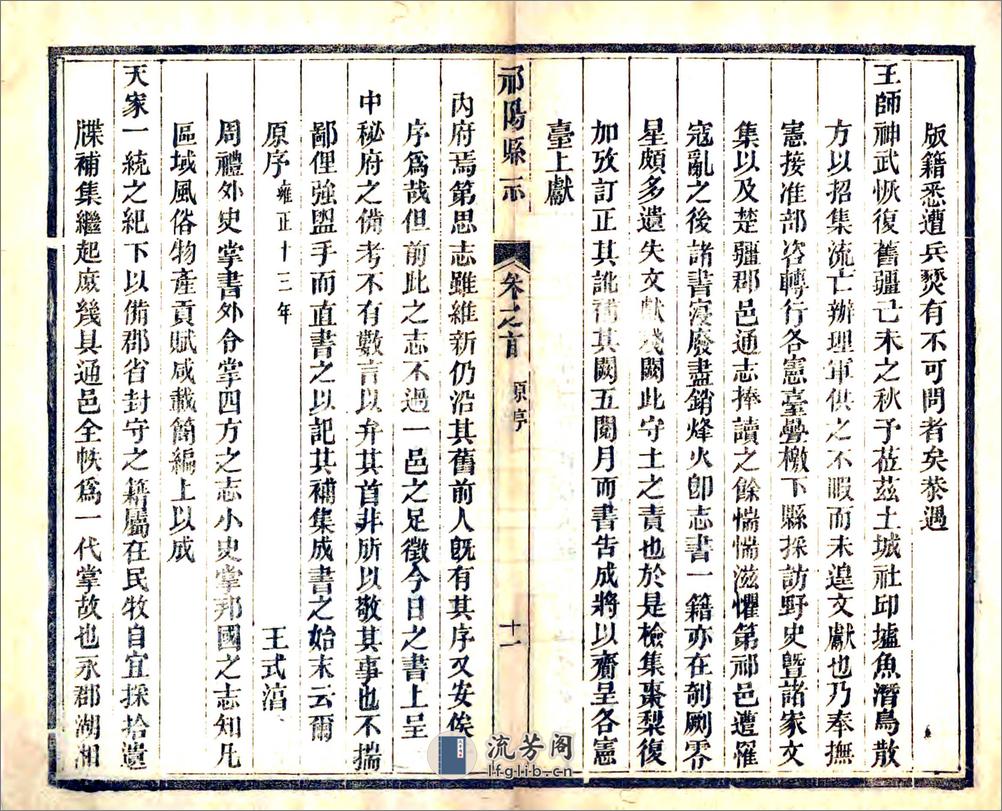 版籍悉遭兵燹有不可問者矣恭遇
王師神武恢復舊疆己未之秋予莅茲土城社邱墟魚潛鳥散
方以招集流亡辦理軍供之不暇而未遑文獻也乃奉撫
憲接准部咨轉行各憲臺疊檄下縣採訪野史曁諸家文
集以及楚疆郡邑通志捧讀之餘惴惴滋懼第祁邑遭罹
寇亂之後諸書寖廢盡銷烽火卽志書一籍亦在剞劂零
星頗多遺失文獻殘闕此守土之責也於是檢集棗梨復
加攷訂正其訛補其闕五閱月而書告成將以齎呈各憲
臺上獻
祁陽縣志
卷之首
原序
十一
內府焉第思志雖維新仍沿其舊前人旣有其序又安俟
序爲哉但前此之志不過一邑之足徵今日之書上呈
中秘府之備考不有數言以弁其首非所以敬其事也不揣
鄙俚強盥手而直書之以記其補集成書之始末云爾
原序 雍正十三年 王式淓
周禮外史掌書外令掌四方之志小史掌邦國之志知凡
區域風俗物產貢賦咸載簡編上以成
天家一統之紀下以備郡省封守之籍屬在民牧自宜採拾遺
牒補集繼起庶幾具通邑全帙爲一代掌故也永郡湖湘
流芳阁
lfglib.cn